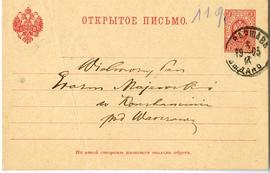 119
ОТКРЫТОЕ ПИСЬМО.
ВАРШАВА
1905
Wielmożny Pan
Erazm Majewski
w Konstancinie
pod Warszawą
На этой стороне пишется только адресъ.